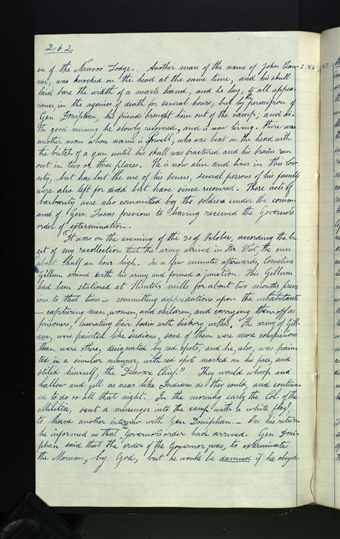 262
en of the Nauvoo Lodge. Another man of the name of John Car-
was knocked on the head at the same time, and his skull
laid bare the width of a man's hand, and he lay, to all appea-
rance in the agonies of death for several hours; but by the permission of
Gen Doniphan, his friends brought him out of the camp, and with
good nursing he slowly recovered, and is now living. There was
another man whose name is Powell, who was beat on the head with
the britch of a gun until his skull was fractured and his brains run
out in two or three places. He is now alive and lives in this
county, but has lost the use of his senses, several persons of his family
were also left for dead but have since recovered. These acts of
barbarity were also committed by the soldiers under the comm-
and of Gen Lucas previous to having received the Governor's
order of extermination.
It was on the evening of the 30th of October, according to the
best of my recollection that the army arrived in Far West, the sun
about half an hour high. In a few minutes afterwards, Cornelius
Gillum arrived with his army and formed a junction. This Gillum
had been stationed at Hunter's mills for about two months previ-
ous to that time — committing depredations upon the inhabitants
— capturing men, women, and children, and carrying them off as
prisoners, lacerating their bodies with hickory withes. The army of Gill-
um, were painted like Indians, some of them were more conspicuous
than were others, designated by red spots, and he, also, was pain-
ted in a similar manner, with red spots marked on his face, and
styled himself, the "Delaware Chief." They would whoop and
hallow and yell as near like Indians as they could, and continued
to do so all that night. In the morning early the Col. of the
Militia, sent a messenger into the camp with a white flag,
to have another interview with Gen Doniphan — On his return
he informed us that Governor's order had arrived. Gen Doni-
phan said that "the order of the Governor was, to exterminate
the Mormons, by God, but he would be damned if he obeyed